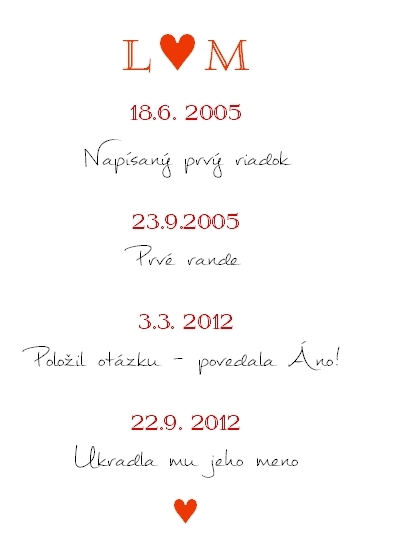 L ♥ M
18.6. 2005
Napísaný prvý riadok
23.9.2005
Prvé rande
3.3. 2012
Položil otázku - povedala Áno!
22.9. 2012
Ukradla mu jeho meno